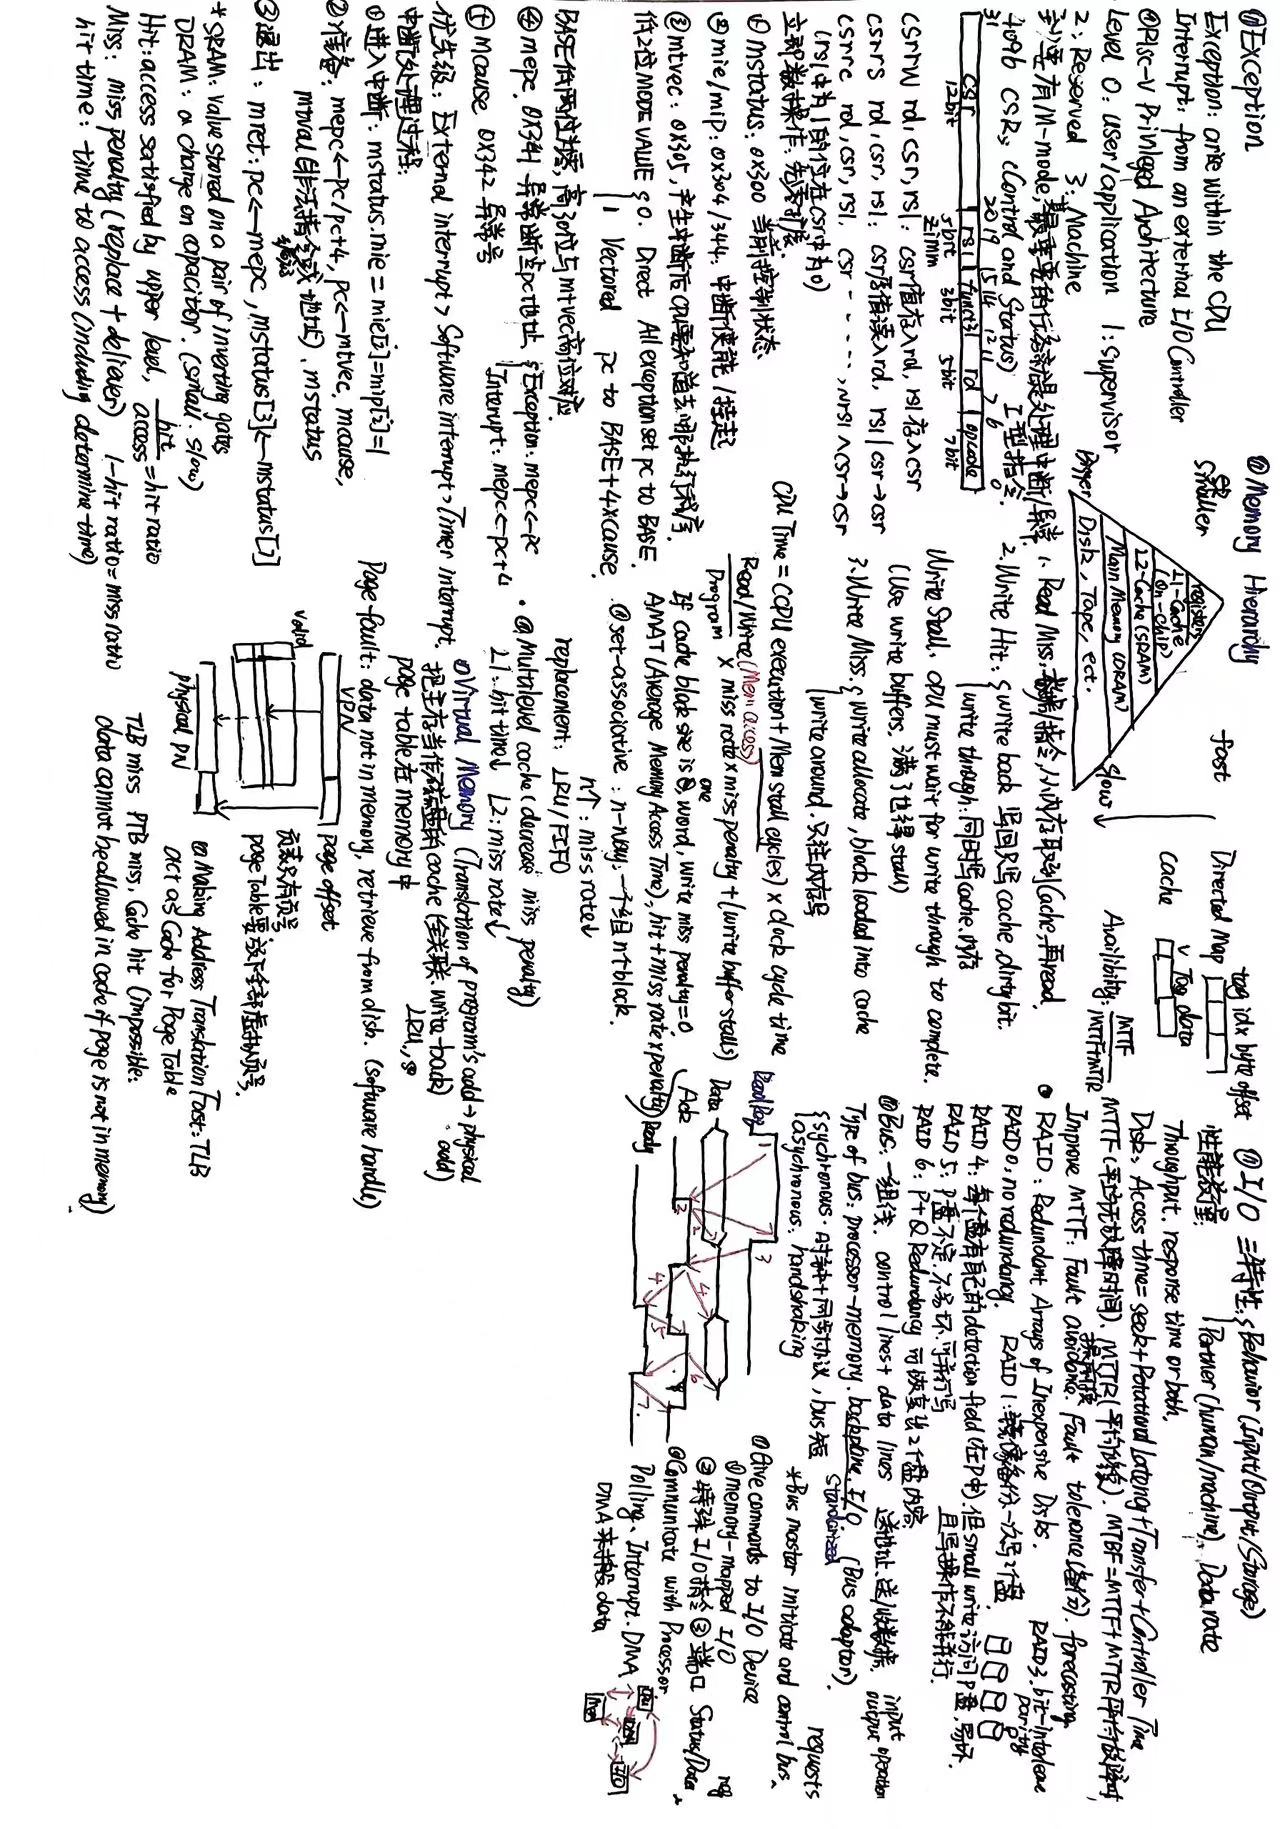 ①Exception
Exception: arise within the CPU
Interrupt: from an external I/O Controller
②RISC-V Privileged Architecture
level 0: user/application 1: supervisor
2: Reserved 3: Machine
4096 CSRs (Control and Status) I型指令.
31 20 19 15 14 12 11 7 6 0
csr rs1 funct3 rd opcode
12bit 5bit 3bit 5bit 7bit
zimm
csrrw rd, csr, rs1: csr值存入rd, rs1存入csr
csrrs rd, csr, rs1: csr原值读入rd, rs1|csr→csr
csrrc rd, csr, rs1. csr ------, ~rs1∧csr→csr
(rs1中为1的位在csr中为0)
立即数操作: 先零扩展.
① mstatus: 0x300 当前控制状态
② mie/mip: 0x304/344. 中断使能/挂起
③ mtvec: 0x305, 产生中断后CPU要知道去哪执行程序.
低2位MODE VALUE 0. Direct All exception set pc to BASE
1 Vectored pc to BASE+4×cause.
BASE低两位对齐, 高30位与mtvec高位对应
④ mepc. 0x341 异常断点pc地址 Exception: mepc←pc
Interrupt: mepc←pc+4
⑤ mcause 0x342 异常号
优先级: External interrupt > Software interrupt > Timer interrupt.
中断处理过程:
①进入中断: mstatus.mie = mie[i] = mip[i] = 1
②准备: mepc←pc/pc+4, pc←mtvec, mcause,
mtval (非法指令或地址). mstatus
③退出: mret: pc←mepc, mstatus[3]←mstatus[7]
*SRAM: value stored on a pair of inverting gates
DRAM: a charge on capacitor. (small. slow)
Hit: access satisfied by upper level, hit/access = hit ratio
Miss: miss penalty (replace + deliever) 1-hit ratio = miss ratio
hit time: time to access (including determine time)
② Memory Hierarchy
Smaller fast
registers
L1-Cache
(on-chip)
L2-Cache (SRAM)
Main Memory (DRAM)
Disk, Tape, ect.
Bigger slow
Directed Map tag idx byte offset
Cache V Tag data
1. Read Miss: 数据/指令, 从内存取到Cache, 再read.
2. Write Hit: write back 写回只写cache, dirty bit.
write through: 同时写cache.内存
Write Stall. CPU must wait for write through to complete.
(Use write buffers, 满了也得stall)
3. Write Miss. write allocate, block loaded into cache
write around. 只往内存写
CPU Time = (CPU execution + Mem stall cycles) × clock cycle time
Read/Write (Mem access)
Program × miss rate × miss penalty + (write buffer stalls)
If cache block size is one word, write miss penalty = 0
AMAT (Average Memory Access Time), hit + miss rate × penalty
② set-associative: n-way. 一个组n个block.
n↑: miss rate↓
replacement: LRU/FIFO
• ③ Multilevel cache (decrease miss penalty)
L1. hit time↓ L2: miss rate↓
① Virtual Memory (Translation of program's add → physical add)
把主存当作磁盘的cache (全关联. write-back)
LRU,
page table在memory中
Page fault: data not in memory, retrieve from dish. (software handle)
VPN page offset
Valid
physical PN
页表只有页号
page Table要放下全部虚拟页号.
② Making Address Translation Fast: TLB
act as Cache for Page Table
TLB miss PTB miss, Cache hit (impossible:
data cannot be allowed in code if page is not in memory)
③ I/O 三特性: Behavior (Input/Output/Storage)
Partner (human/machine), Data rate
性能衡量:
Throughput. response time or both.
Disk: Access time = seek + Rotational Latency + Transfer + Controller Time
MTTF (平均无故障时间). MTTR (平均修复). MTBF = MTTF + MTTR 平均故障时间
Availibility: MTTF/MTTF+MTTR
Improve MTTF: Fault avoidance. Fault tolerance (备份). forecasting
• RAID: Redundant Arrays of Inexpensive Disks.
RAID 0: no redundancy. RAID 1: 镜像备份, 一次写2个盘 RAID 3. bit-interleave parity
RAID 4: 每个盘有自己的detection field (在P中). 但small write访问P盘, 易坏.
RAID 5: P盘不定. 不易坏. 可并行写 且写操作不能并行.
RAID 6: P+Q Redundancy 可恢复2个盘内容
④ Bus: 一组线. control lines + data lines 送地址. 送/收数据. input output operation
Type of bus: processor-memory. backplane. I/O (Bus adaptor).
standarized
sychronous. 时钟+同步协议, bus短
asychronous: handshaking
*Bus master initiate and control bus requests.
ReadReq 1 3
Data
Ack 2 4 6
Ready 4 5 7
① Give commands to I/O Device
① memory-mapped I/O
② 特殊I/O指令 ③ 端口 Status/Data reg
② Communicate with Processor
Polling. Interrupt. DMA
DMA来搬data
CPU
DMA
Mem
I/O